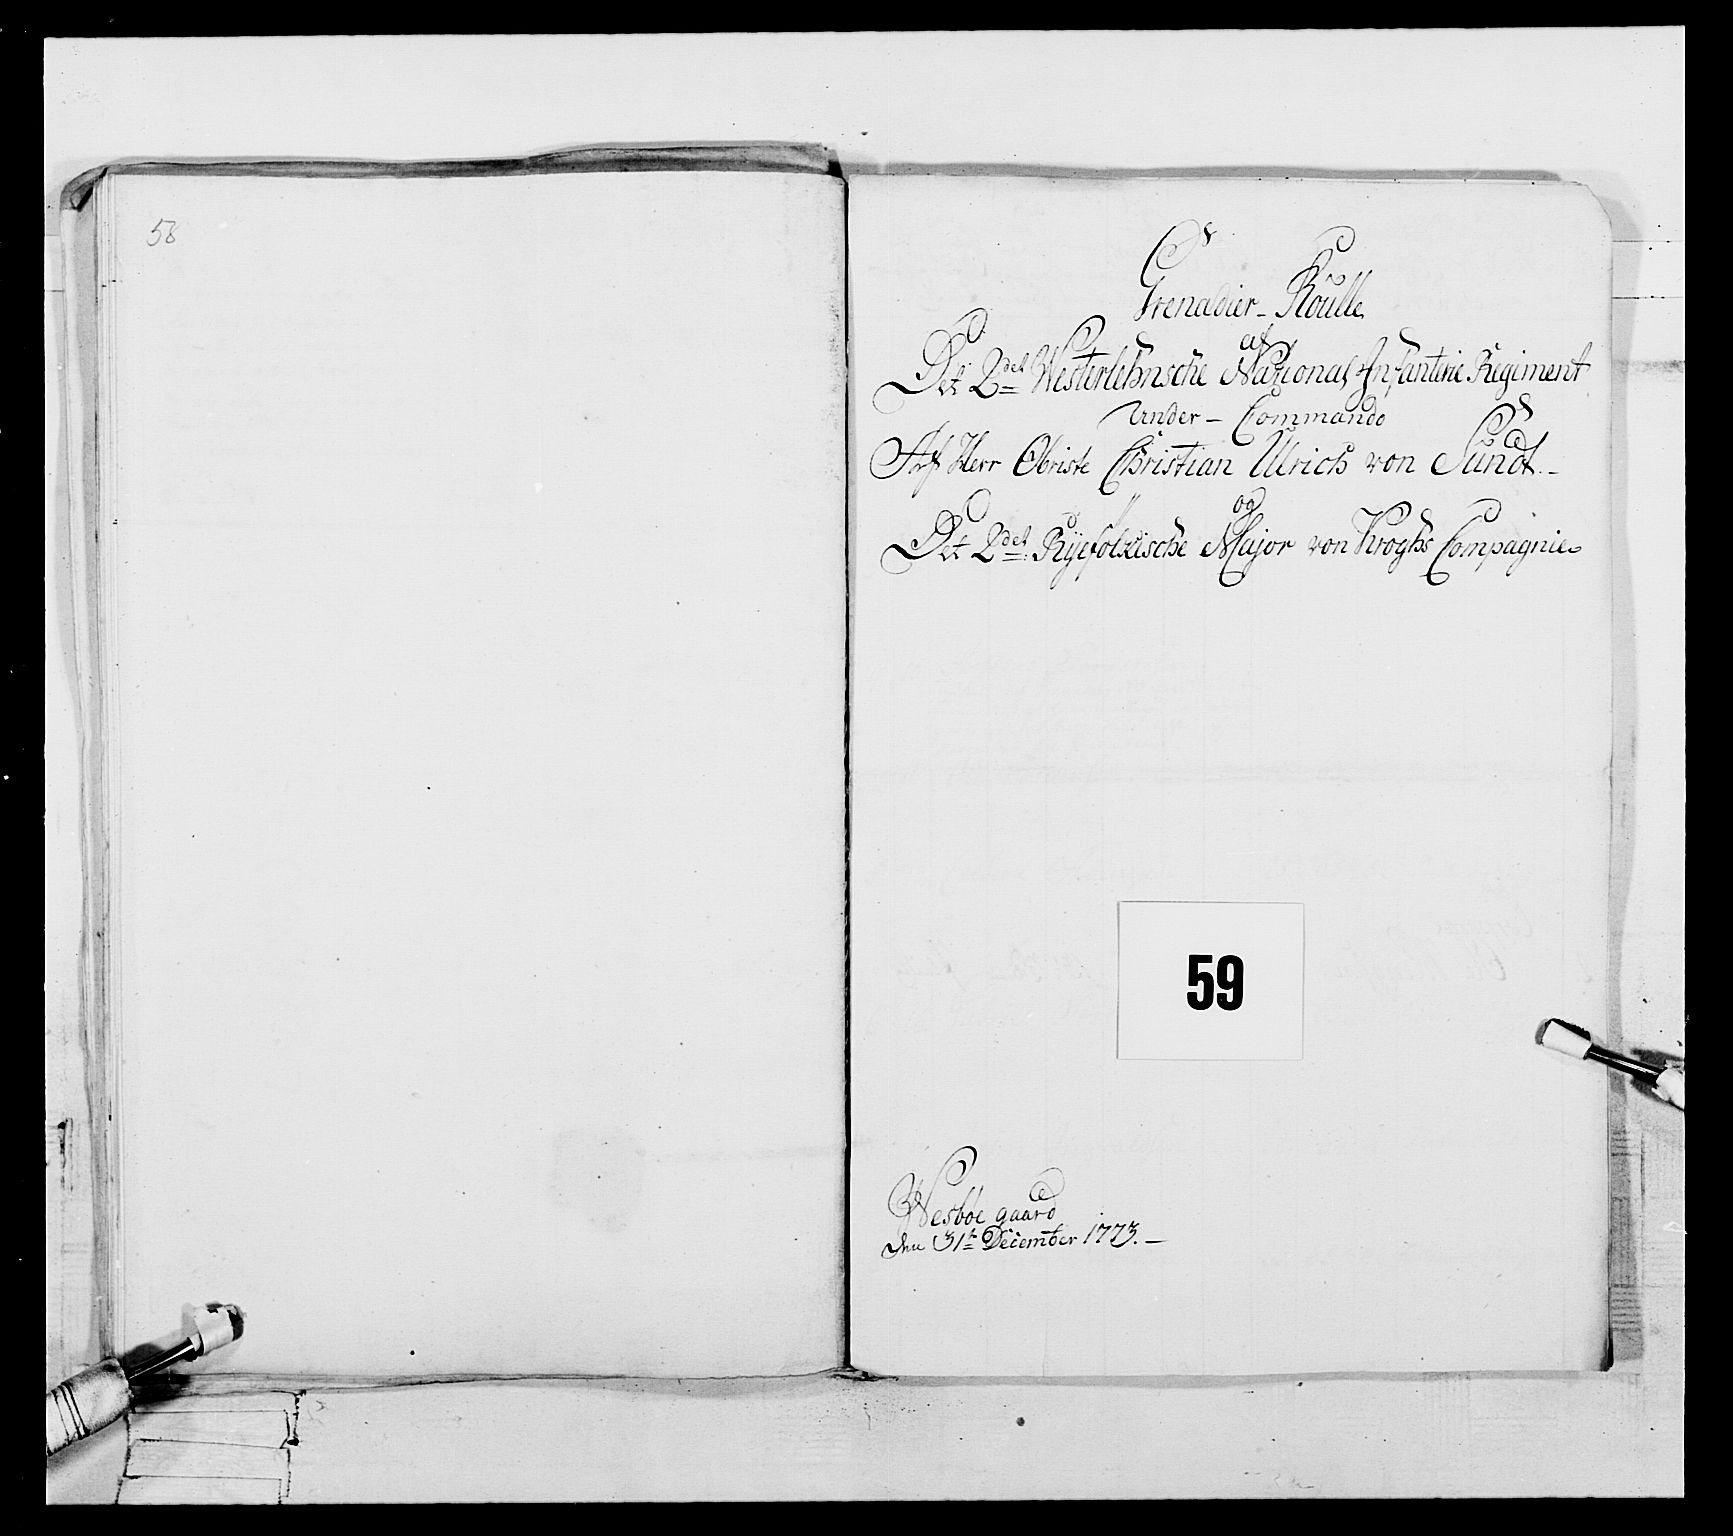 58
Grenadier-Roulle
af
Det 2det Westerlehnsche National Infanterie Regiment
under - Commando
Arf Herr Obriste Christian Ulrich von Sundt.-
og
Det 2det Ryefölkische Major von Kroghs Compagnie
59
Wesboe gaard
den 31t December 1773.-